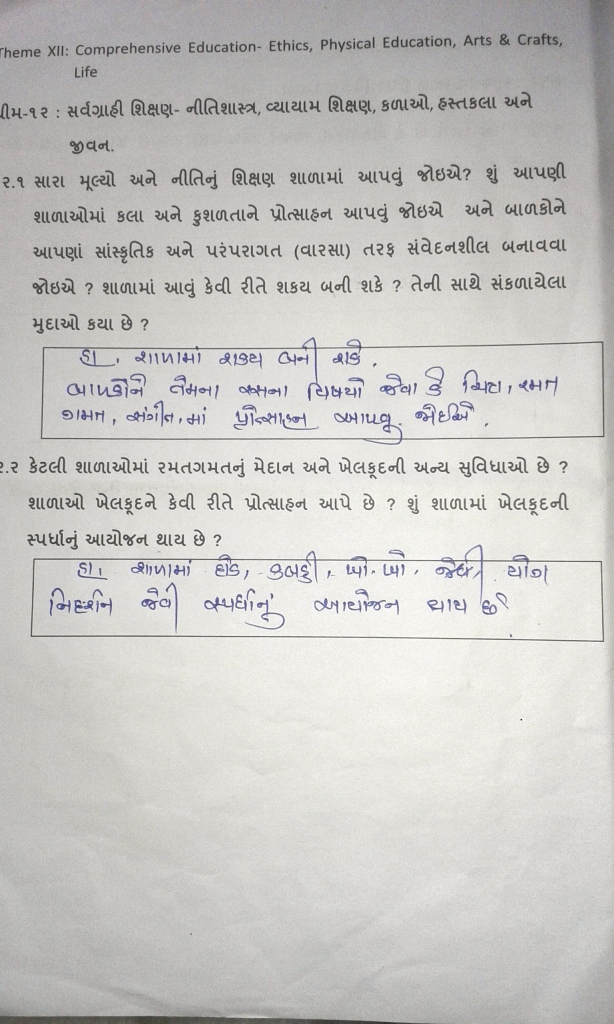 Theme XII: Comprehensive Education- Ethics, Physical Education, Arts & Crafts,
Life
થીમ-૧૨ : સર્વગ્રાહી શિક્ષણ- નીતિશાસ્ત્ર, વ્યાયામ શિક્ષણ, કળાઓ, હસ્તકલા અને
જીવન.
૨.૧ સારા મૂલ્યો અને નીતિનું શિક્ષણ શાળામાં આપવું જોઇએ? શું આપણી
શાળાઓમાં કલા અને કુશળતાને પ્રોત્સાહન આપવું જોઇએ અને બાળકોને
આપણાં સાંસ્કૃતિક અને પરંપરાગત (વારસા) તરફ સંવેદનશીલ બનાવવા
જોઇએ ? શાળામાં આવું કેવી રીતે શકય બની શકે ? તેની સાથે સંકળાયેલા
મુદાઓ કયા છે ?
હા, શાળામાં શક્ય બની શકે.
બાળકોને તેમના રસના વિષયો જેવા કે ચિત્ર, રમત
ગમત, સંગીત, માં પ્રોત્સાહન આપવુ જોઈએ.
૨.૨ કેટલી શાળાઓમાં રમતગમતનું મેદાન અને ખેલકૂદની અન્ય સુવિધાઓ છે ?
શાળાઓ ખેલકૂદને કેવી રીતે પ્રોત્સાહન આપે છે ? શું શાળામાં ખેલકૂદની
સ્પર્ધાનું આયોજન થાય છે ?
હા, શાળામાં દોડ, કબડ્ડી, ખો.ખો. યોગ
નિદર્શન જેવી સ્પર્ધાનું આયોજન થાય છે